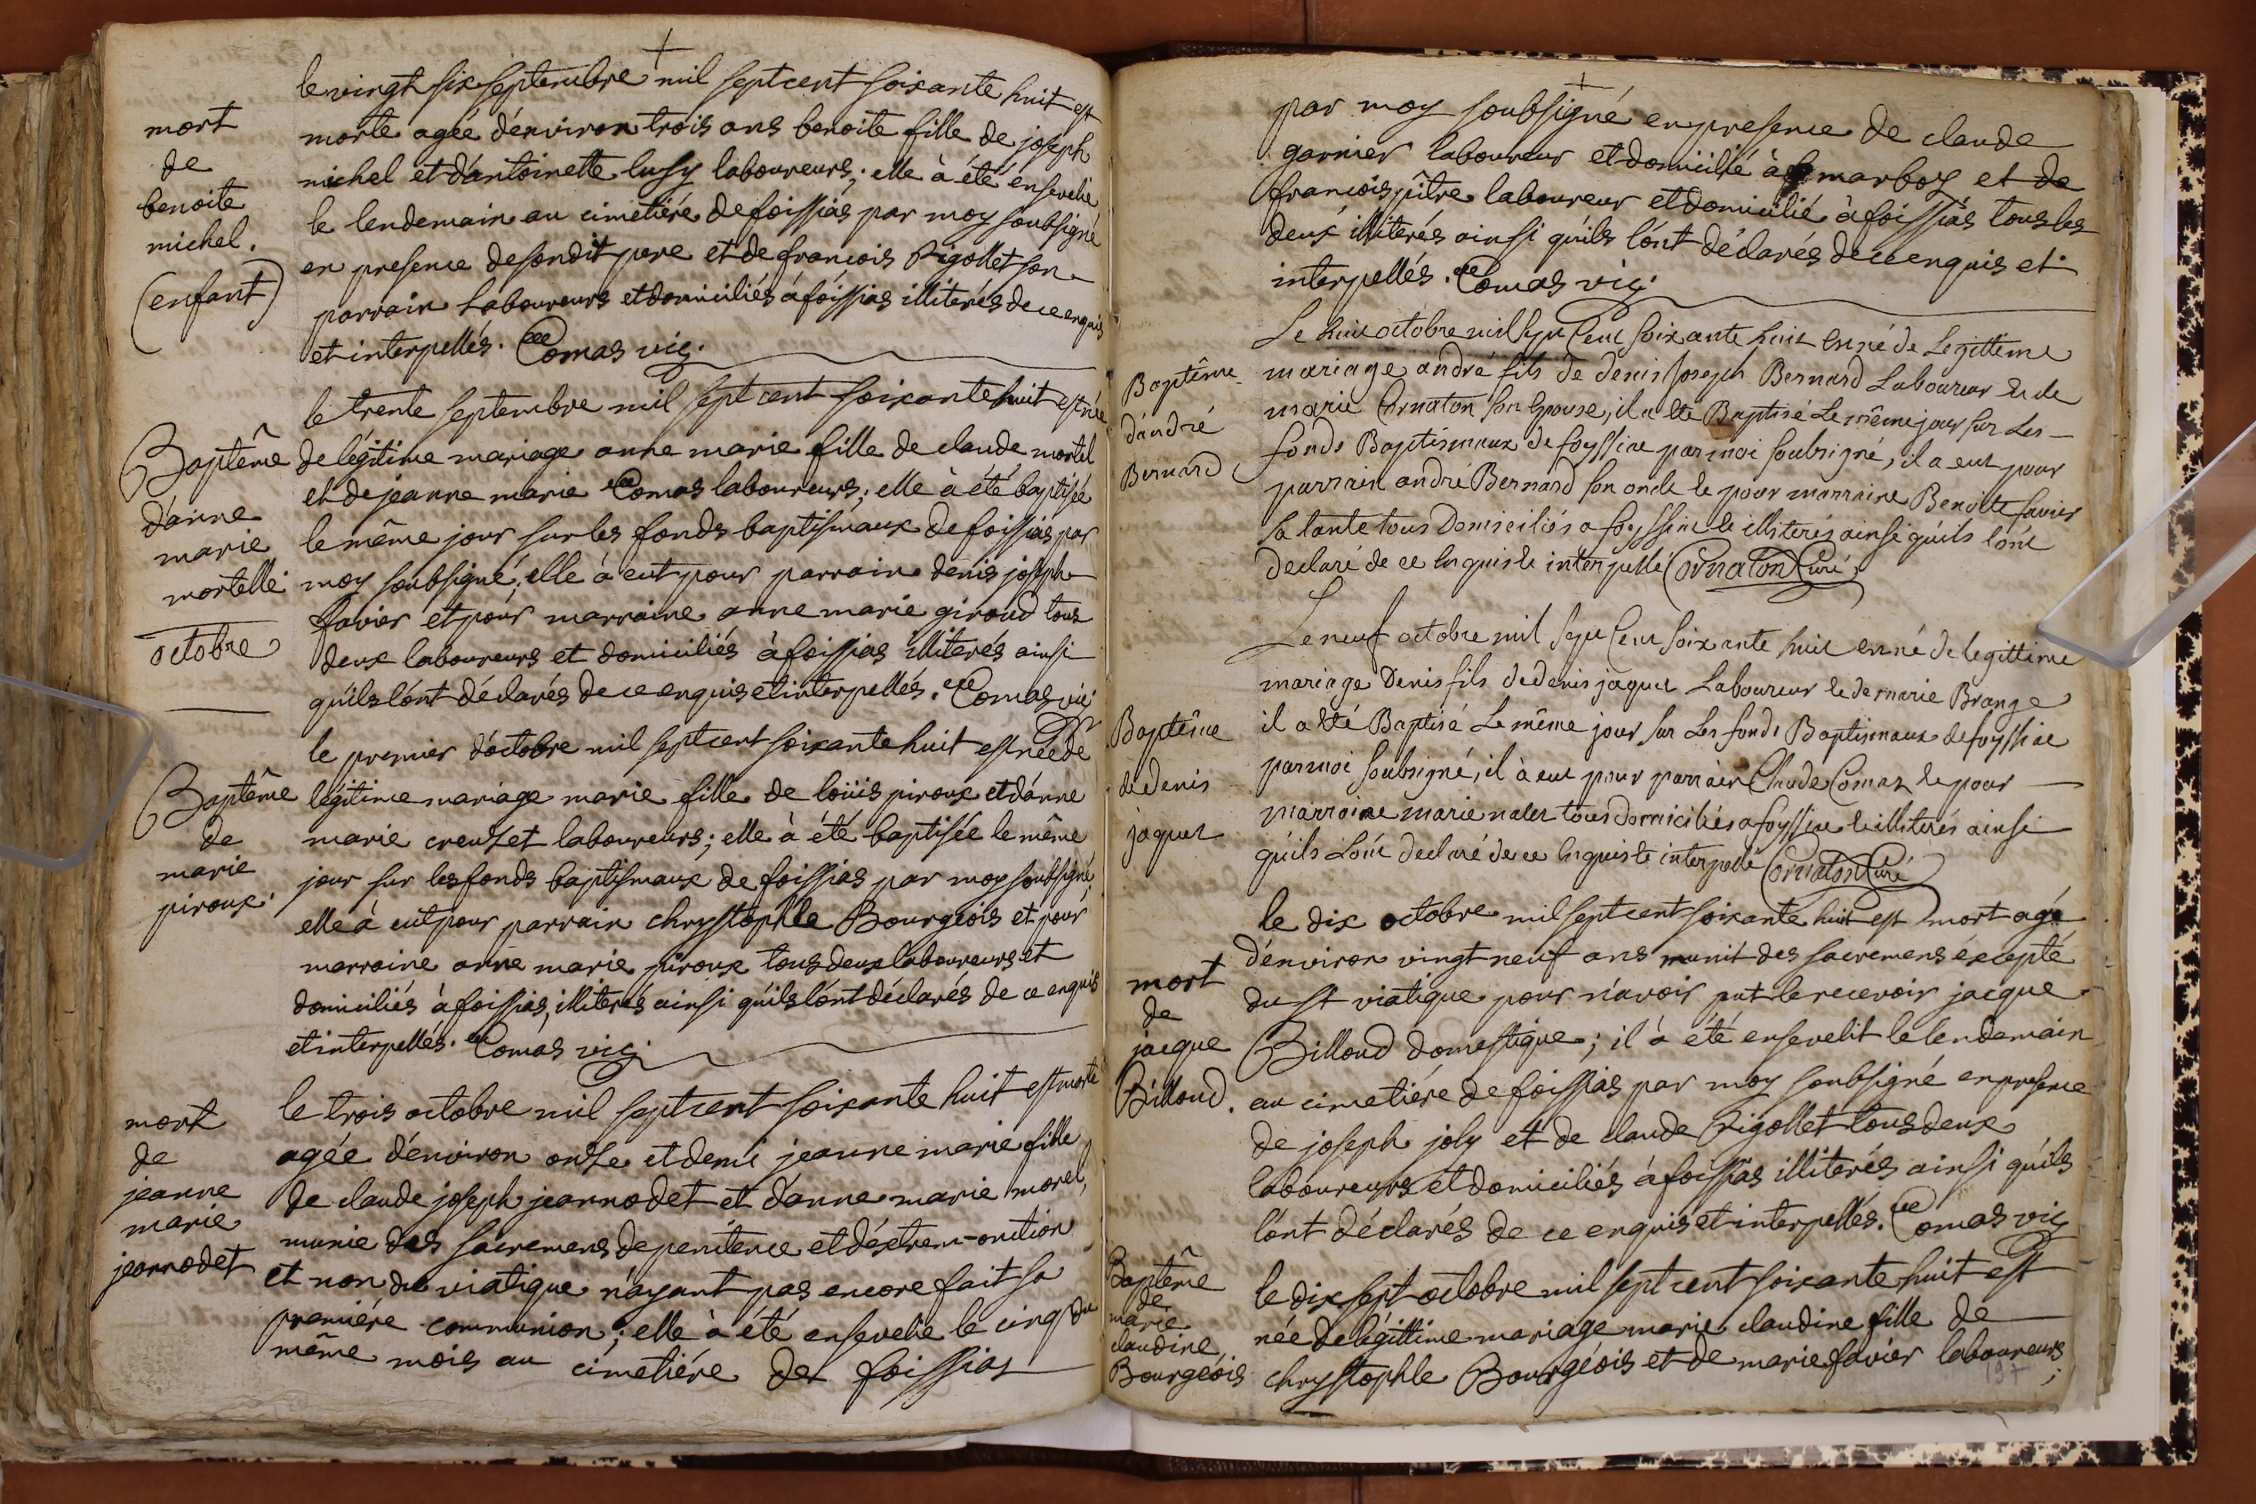 le vingt six septembre mil sept cent soixante huit est
mort
de
benoite
michel.
(enfant)
morte agée d'énviron trois ans benoite fille de joseph
michel et d'antoinette lusy laboureurs; elle à été énsevelie
le lendemain au cimetiére de foissias par moy soubsigné
en presence de son dit pere et de francois Rigollet son
parrain laboureurs et domiciliés à foissias illiterés de ce enquis
et interpellés. Comas vic.
le trente septembre mil sept cent soixante huit est née
Baptême
d'anne
marie
mortelle
de légitime mariage anne marie fille de claude mortel
et de jeanne marie Comas laboureurs; elle à été baptisée
le même jour sur les fonds baptismaux de foissias par
moy soubsigné; elle à eut pour parrain denis joseph
favier et pour marraine anne marie giroud tous
octobre
deux laboureurs et domiciliés à foissias illiterés ainsi
qu'ils l'ónt déclarés de ce enquis et interpellés. Comas vic
le premier d'octobre mil sept cent soixante huit est née de
Baptême
de
marie
piroux.
légitime mariage marie fille de loüis piroux et d'anne
marie creuzet laboureurs; elle à été baptisée le même
jour sur les fonds baptismaux de foissias par moy soubsigné;
elle à eut pour parrain chrystophle Bourgeois et pour
marraine anne marie piroux tous deux laboureurs et
domiciliés à foissias, illiterés ainsi qu'ils l'ónt déclarés de ce enquis
et interpellés. Comas vic.
le trois octobre mil sept cent soixante huit est morte
mort
de
jeanne
marie
jeannodet
agée d'énviron onze et demi jeanne marie fille
de claude joseph jeannodet et d'anne marie morel,
munie des sacremens de penitence et d'éxtrem-onction
et non du viatique n'ayant pas encore fait sa
premiére communion; elle à été ensevelie le cinq du
même mois au cimetiére de foissias
par moy soubsigné en presence de claude
garnier laboureur et domicilié à marboz et de
francois pitre laboureur et domicilié à foissias tous les
deux illiterés ainsi qu'ils l'ónt déclarés de ce enquis et
interpellés. Comas vic.
Le huit octobre mil sept Cent soixante huit est né de Legittime
Baptême
d'andré
Bernard
mariage andré fils de denis Joseph Bernard Laboureur et de
marie Cornaton son Epouse, il a été Baptisé Le même jour sur Les
fonds Baptismaux de foyssiat par moi soubsigné, il a eut pour
parrain andré Bernard son oncle et pour marraine Benoîte favier
sa tante tous Domiciliés a foyssiat et illiterés ainsi qu'ils l'ónt
declaré de ce Enquis et interpellé Cornaton Curé
Le neuf octobre mil sept Cent soixante huit est né de legittime
mariage Denis fils de denis jaquet Laboureur et de marie Brange
Baptême
de denis
jaquet
il a été Baptisé Le même jour sur Les fonds Baptismaux de foyssiat
par moi soubsigné, il à eut pour parrain Claude Comas et pour
marraine marie nalet tous Domiciliés a foyssiat et illiterés ainsi
qu'ils L'ónt declaré de ce Enquis et interpellé Cornaton Curé
le dix octobre mil sept cent soixante huit est mort agé
mort
de
jacque
Billoud.
d'énviron vingt neuf ans munit des sacremens éxcepté
du st viatique pour n'avoir put le recevoir jacque
Billoud domestique; il à été ensevelit le lendemain
au cimetiére de foissias par moy soubsigné en presence
de joseph joly et de claude Rigollet tous deux
laboureurs et domiciliés à foissias illiterés ainsi qu'ils
l'ónt déclarés de ce enquis et interpellés. Comas vic
Baptême
de
marie
claudine
Bourgéois
le dix sept octobre mil sept cent soixante huit est
née de légittime mariage marie claudine fille de
chrystophle Bourgéois et de marie favier laboureurs;
197